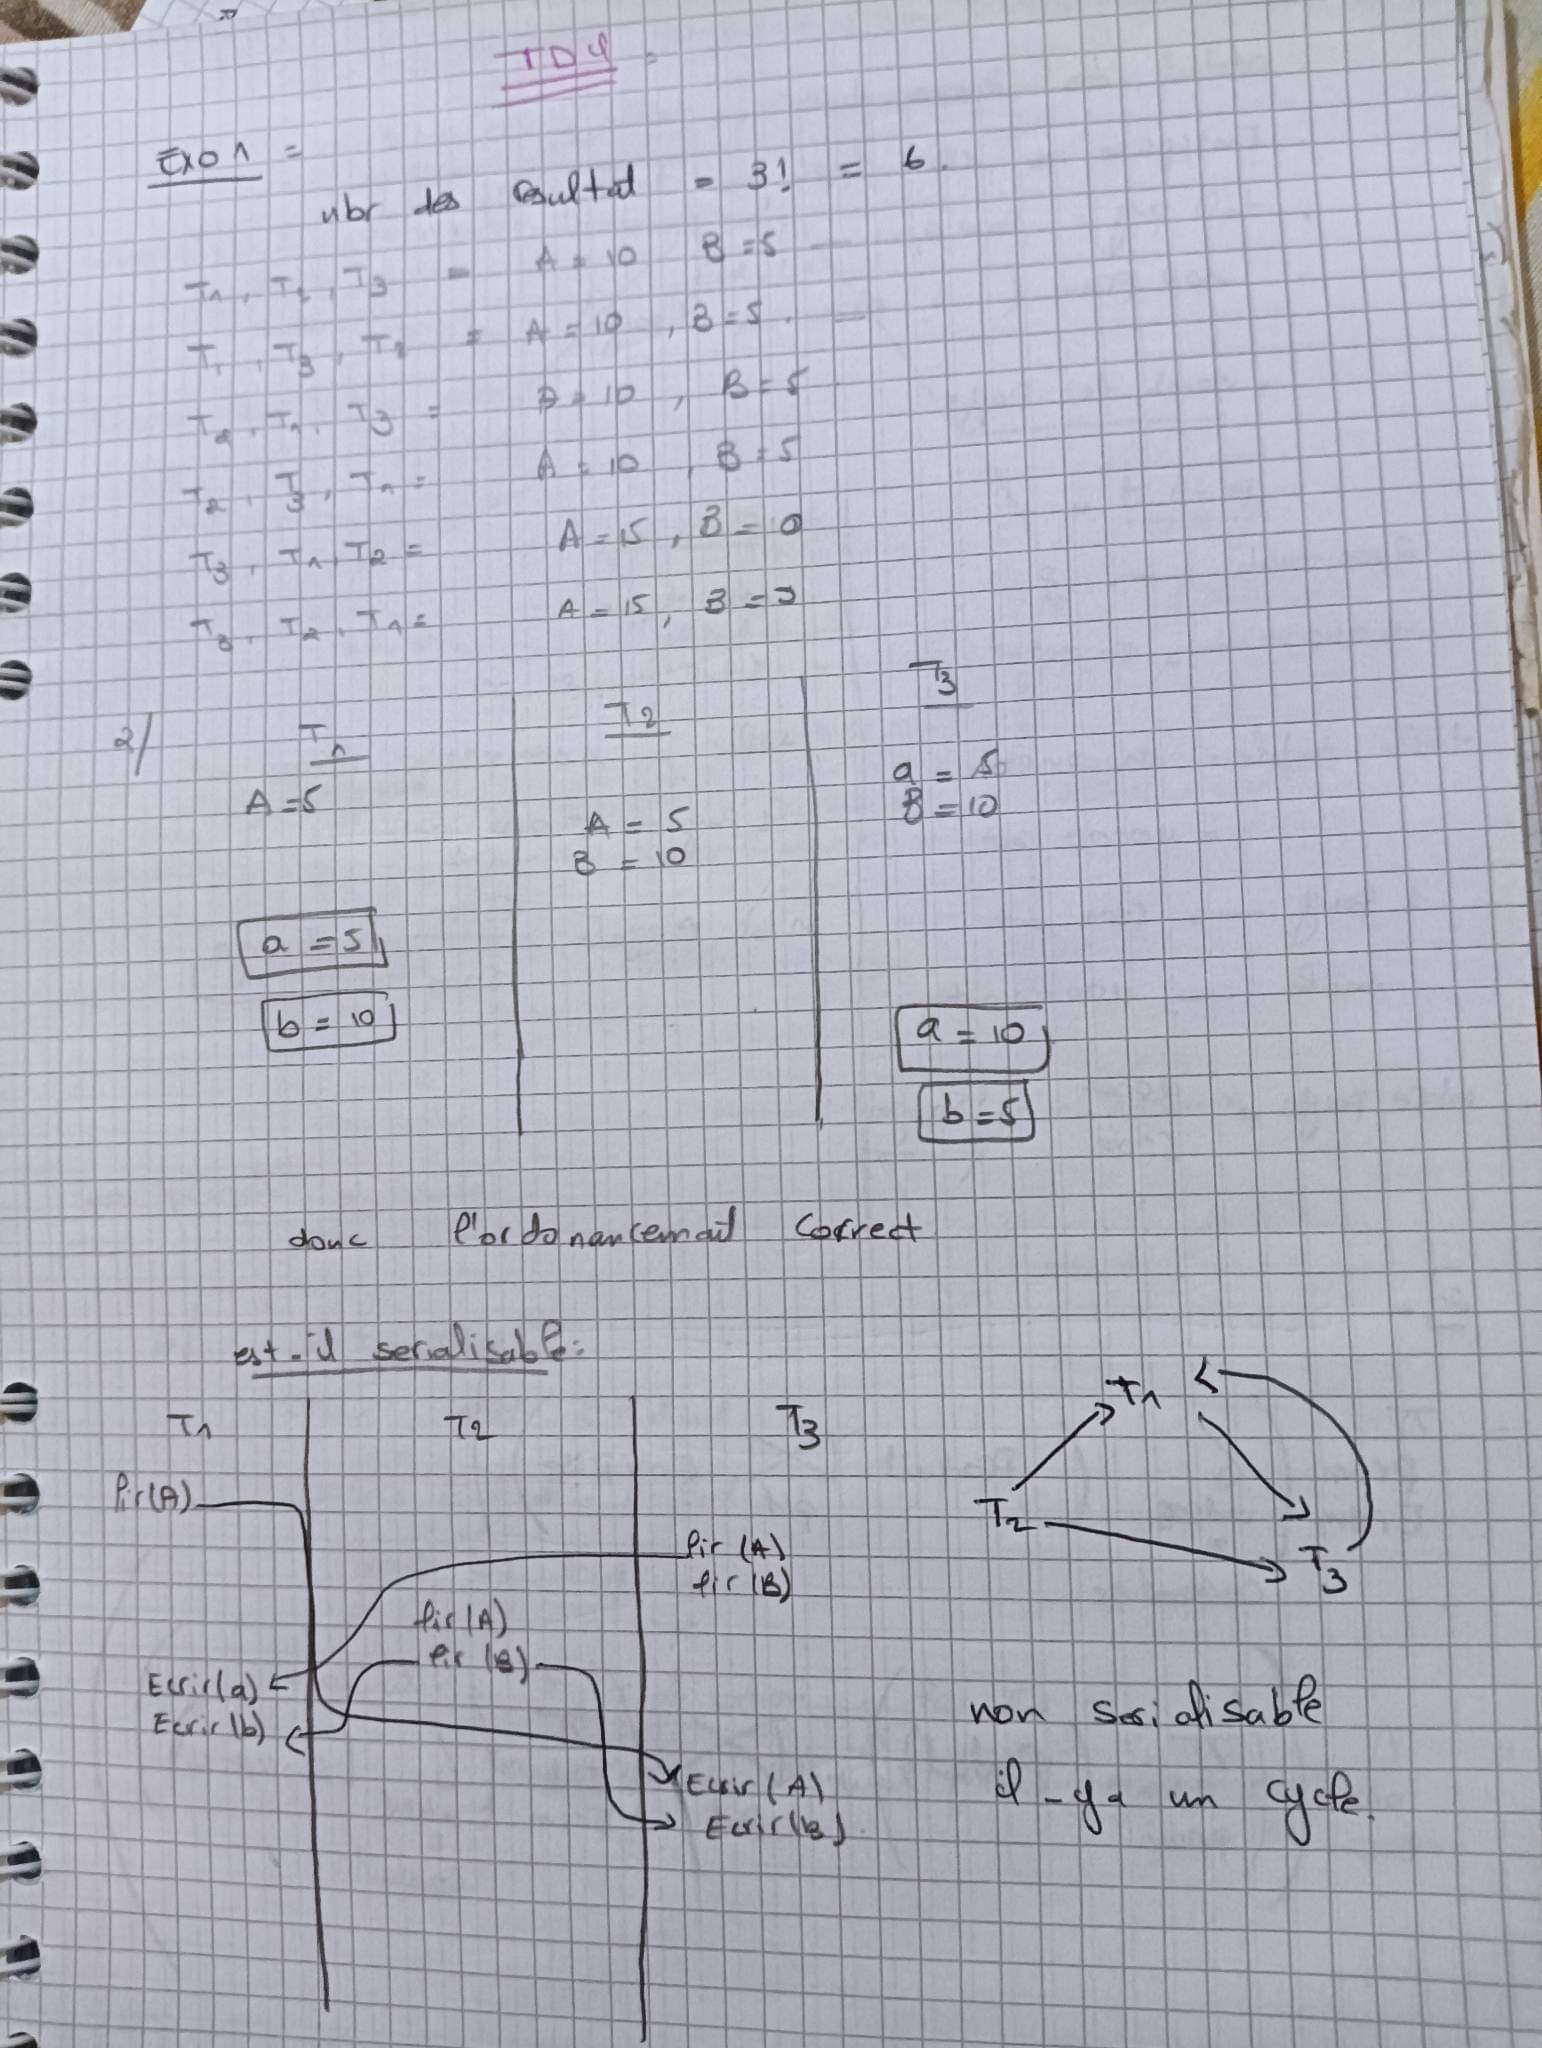 TD4 :
Exo 1 =
nbr des resultat = 3! = 6.
T1, T2, T3 = A = 10 B = 5
T1, T3, T2 = A = 10, B = 5.
T2, T1, T3 = A = 10, B = 5
T2, T3, T1 = A = 10, B = 5
T3, T1, T2 = A = 15, B = 10
T3, T2, T1 = A = 15, B =
2/ T1 T2 T3
A = 5
a = 5
B = 10
A = 5
B = 10
a = 5
b = 10
a = 10
b = 5
donc l'ordonancemait correct
est-il serialisable:
T1 T2 T3
lir(A)
lir (A)
lir (B)
lir (A)
lir (B)
Ecrir(a)
Ecrir(b)
Ecrir (A)
Ecrir (B)
T1
T2
T3
non serialisable
il-ya un cycle.